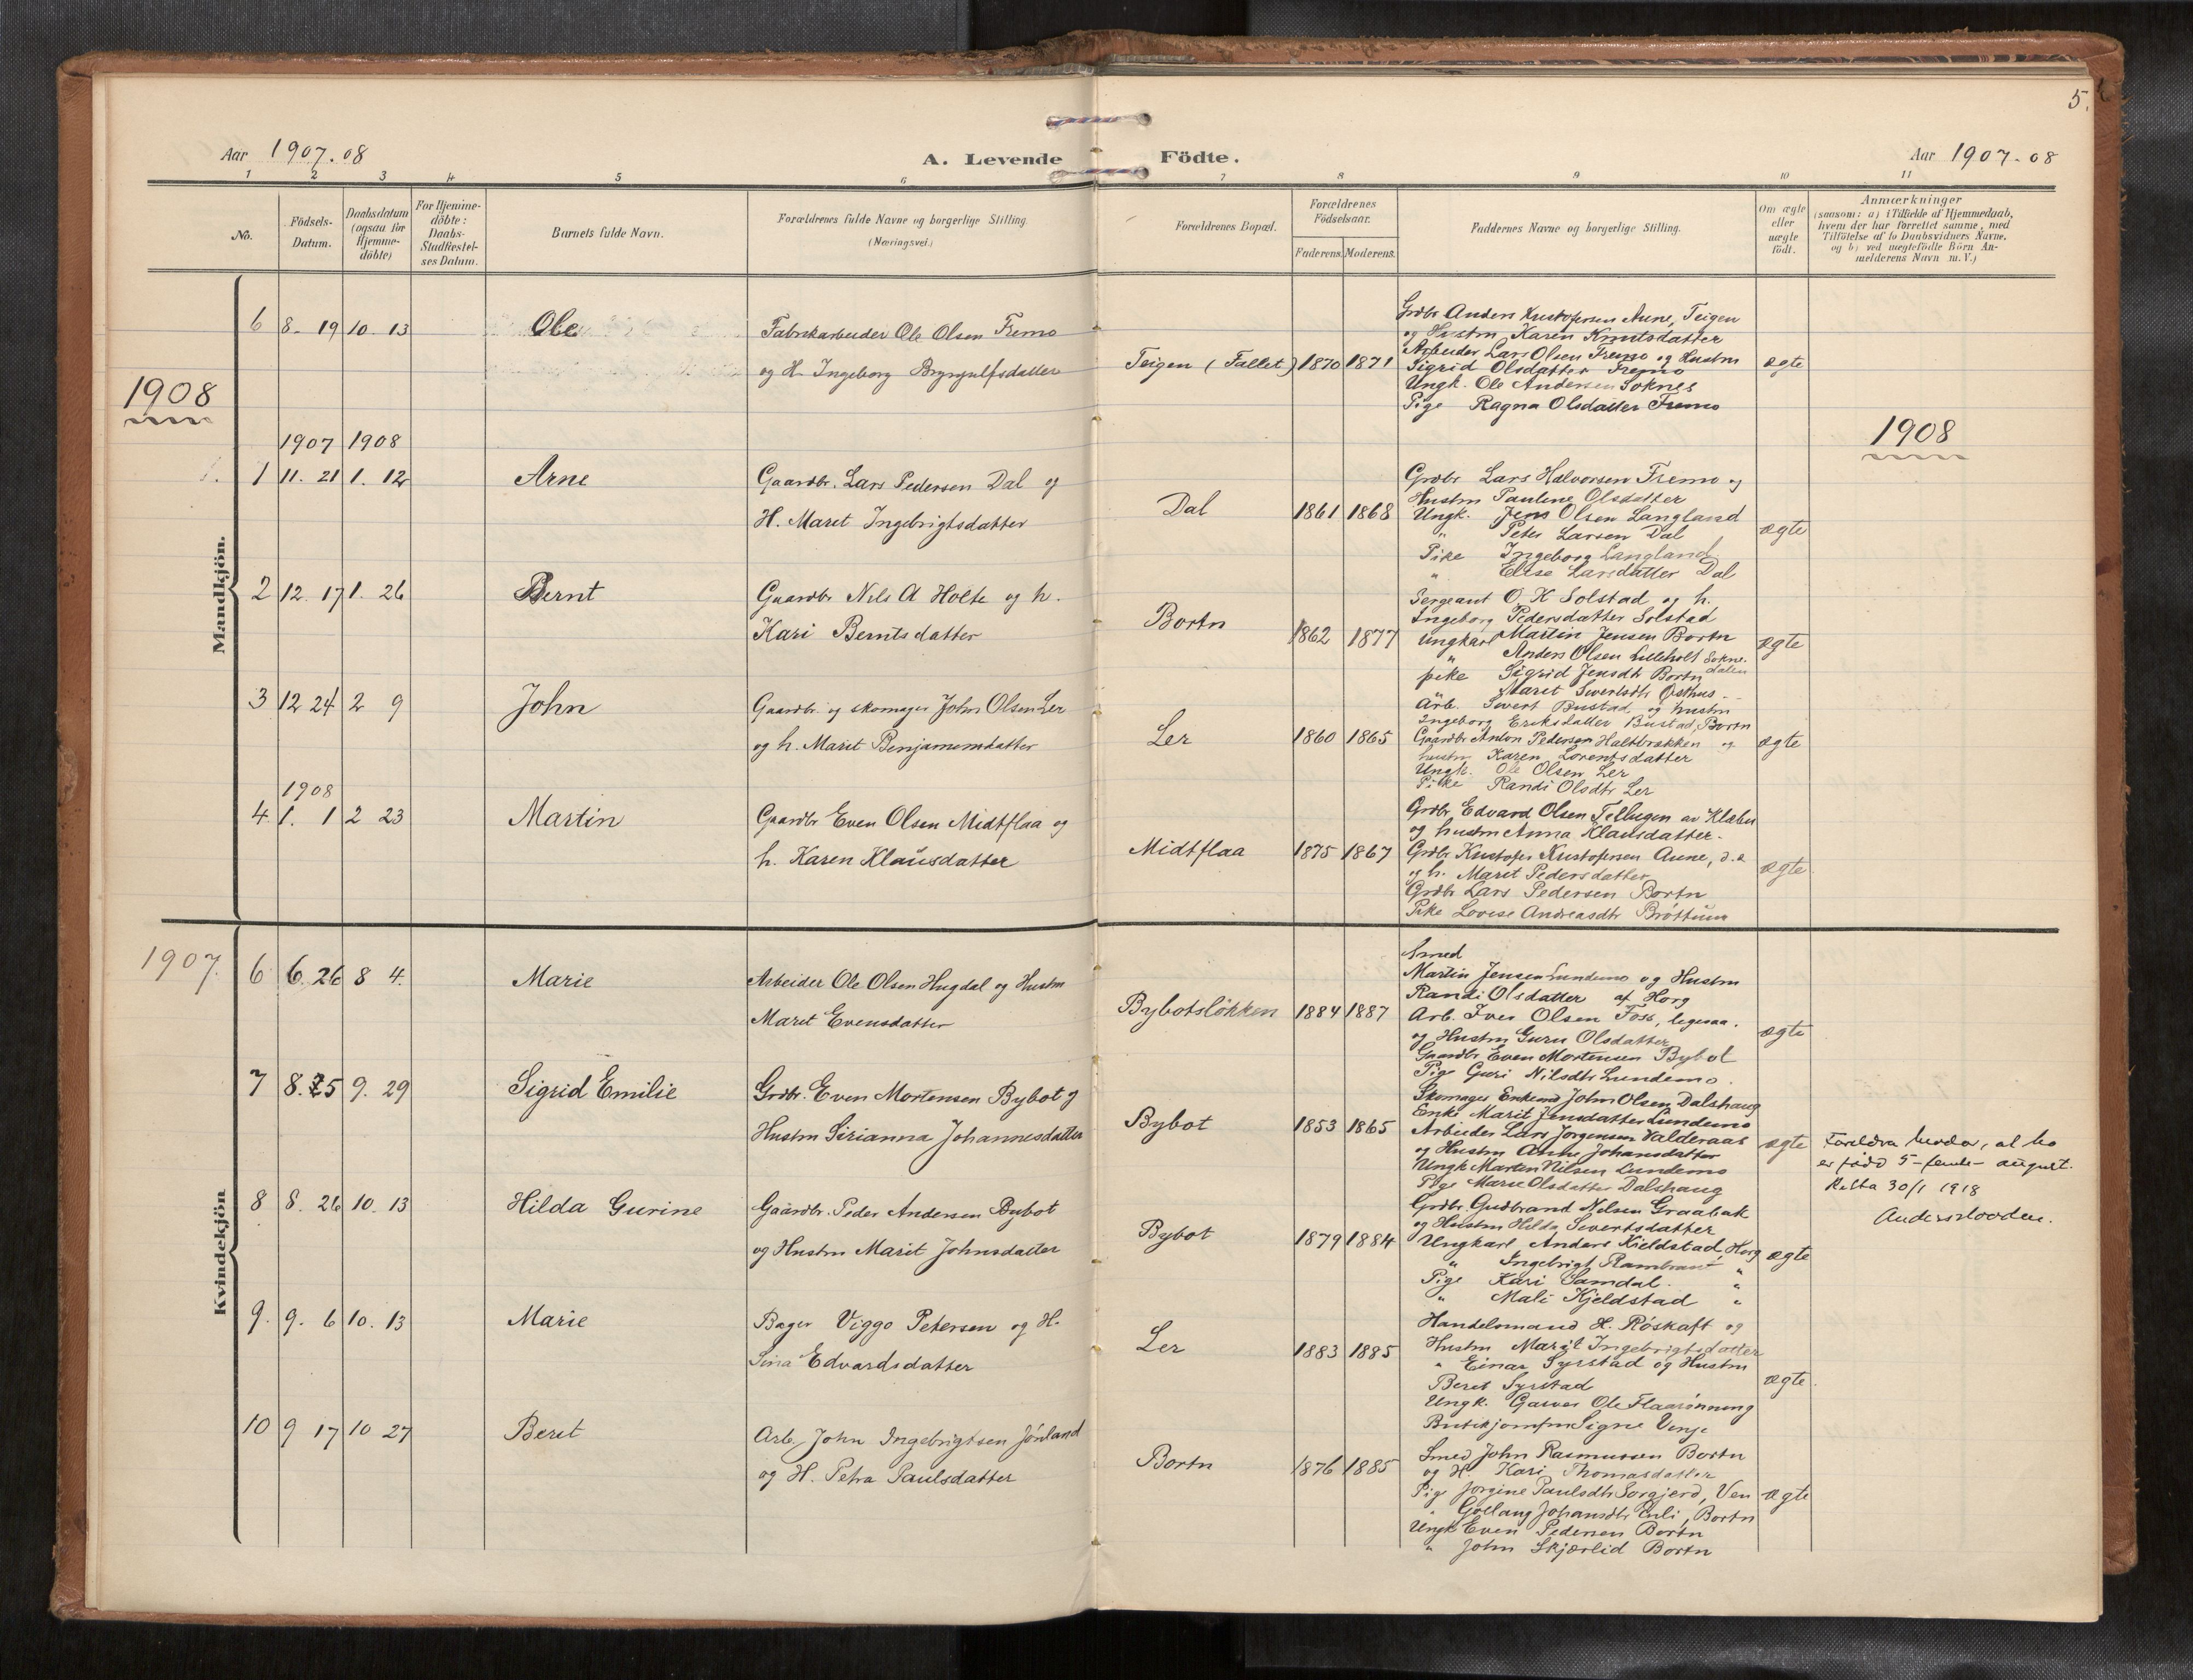 5.
Aar 1907.08
A. Levende Födte.
Aar 1907-08
1 2 3 4 5 6 7 8 9 10 11
No.
Födsels-Datum.
Daabsdatum (ogsaa for Hjemme-döbte)
For Hjemme-döbte: Daabs-Stadfestel-ses Datum.
Barnets fulde Navn.
Forældrenes fulde Navne og borgerlige Stilling.
(Næringsvei.)
Forældrenes Bopæl.
Forældrenes Födselsaar.
Faderens. Moderens.
Faddernes Navne og borgerlige Stilling.
Om ægte eller uægte födt.
Anmærkninger
(saasom: a) i Tilfælde af Hjemmedaab,
hvem der har forrettet samme, med
Tilföielse af to Daabsvidners Navne.
og b) ved uægtefödte Börn An-
melderens Navn m. V.)
Mandkjön.
6 8. 19 10. 13 Ole
Fabrikarbeider Ole Olsen Fremo
og H. Ingeborg Brynjulfsdatter
Teigen (Fallet) 1870 1871
Grdbr Anders Kristofersen Aune, Teigen
og Hustru Karen Knutsdatter
Arbeider Lars Olsen Fremo og Hustru
Sigrid Olsdatter Fremo
Ungk. Ole Andersen Soknes
Pige Ragna Olsdatter Fremo
ægte
1908
1908
1907 1908
1 11. 21 1. 12 Arne
Gaardbr. Lars Pedersen Dal og
H. Maret Ingebrigtsdatter
Dal 1861 1868
Grdbr Lars Halvorsen Fremo og
Hustru Pauline Olsdatter
Ungk. Jens Olsen Langland
" Peter Larsen Dal
Pike Ingeborg Langland
" Elise Larsdatter Dal
ægte
2 12. 17 1. 26 Bernt
Gaardbr Nils A Holte og h.
Kari Berntsdatter
Bortn 1862 1877
Sergeant O. K Solstad og h.
Ingeborg Pedersdatter Solstad
Ungkarl Martin Jensen Bortn
" Anders Olsen Lilleholt Sokne-
dalen
pike Sigrid Jensdtr Bortn
" Maret Sivertsdtr Öshus
ægte
3 12 24 2 9 John
Gaardbr. og skomager John Olsen Ler
og h. Marit Benjaminsdatter
Ler 1860 1865
Arb. Sivert Bustad og hustru
Ingeborg Eriksdatter Bustad, Bortn
Gaardbr Anton Pedersen Haltbrækken og
hustru Karen Lorentsdatter
Ungk. Ole Olsen Ler
Pike Randi Olsdtr Ler
ægte
1908
4 1. 1 2 23 Martin
Gaardbr Even Olsen Midtflaa og
h. Karen Klausdatter
Midtflaa 1875 1867
Grdbr. Edvard Olsen Tellugen av Klæbu
og hustru Anna Klausdatter.
Grdbr Kristofer Kristofersen Aune, d.e
og h. Marit Pedersdatter
Grdbr Lars Pedersen Bortn
Pike Lovise Andreasdtr Bröttum
ægte
1907.
Kvindekjön
6 6. 26 8 4. Marie
Arbeider Ole Olsen Hugdal og Hustru
Maret Evensdatter
Bybotslökken 1884 1887
Smed
Martin Jensen Lundemo og Hustru
Randi Olsdatter af Horg
Arb. Iver Olsen Foss, legesaa.
og Hustru Guru Olsdatter
Gaardbr Even Mortensen Bybot
Pige Guri Nilsdtr Lundemo.
ægte
7 8. 25 9. 29 Sigrid Emilie
Grdbr. Even Mortensen Bybot og
Hustru Sirianna Johannesdatter
Bybot 1853 1865
Skomager Enkemd John Olsen Dalshaug
Enke Marit Jensdatter Lundemo
Arbeider Lars Jorgensen Valderaas
og Hustru Anne Johansdatter
Ungk Martin Nilsen Lundemo
Pige Marie Olsdatter Dalshaug
ægte
Foreldra hevdar, at ho
er född 5- femte- august.
Retta 30/1 1918
8 8. 26 10. 13 Hilda Gurine
Gaardbr. Peder Andersen Bybot
og Hustru Marit Johnsdatter
Bybot 1879 1884
Grdbr. Gudbrand Nelsen Graabak
og Hustru Hilda Sivertsdatter
Ungkarl Anders Kjeldstad, Horg
" Ingebrigt "
Pige Kari Samdal. "
" Mali Kjeldstad "
ægte
9. 9. 6 10. 13 Marie
Bager Viggo Petersen og H.
Sina Edvardsdatter
Ler 1883 1885
Handelsmand H. Röskaft og
Hustru Marit Ingebrigtsdatter
" Einar Syrstad og Hustru
Beret Syrstad
Ungk. Garver Ole Flaarönning
Butikjomfru Signe Vinje
ægte
10 9 17 10 27 Beret
Arb. John Ingebrigtsen Jönland
og H. Petra Paulsdatter
Bortn 1876 1885
Smed John Rasmussen Bortn
og H. Kari Thomasdatter
Pige Jorgine Paulsdtr Sorgjerd, Ven
" Gollaug Johansdtr Enli, Bortn
Ungk Even Pedersen Bortn
" John Skjærlid Bortn
ægte